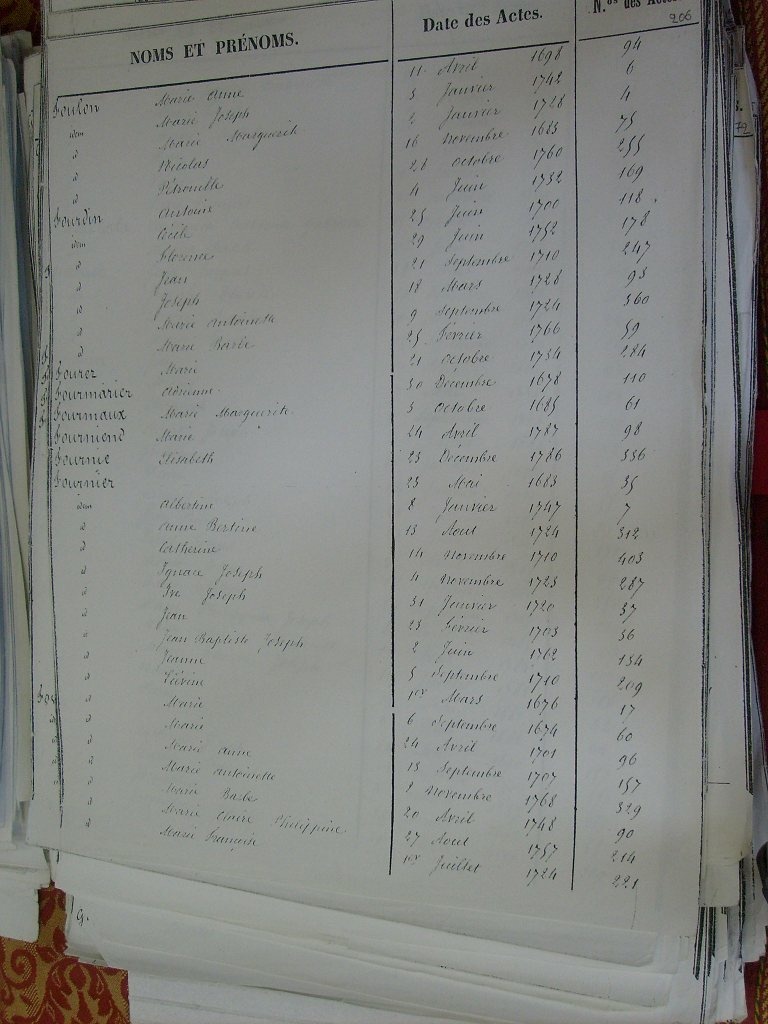 NOMS ET PRÉNOMS. Date des Actes. N.os des Actes
206
Foulon Marie Anne 11 Avril 1698 94
idem Marie Joseph 3 Janvier 1742 6
d Marie Marguerite 2 Janvier 1728 4
d Nicolas 16 Novembre 1683 75
d Pétronille 26 Octobre 1760 255
Fourdin Antoine 4 Juin 1732 169
idem Cécile 25 Juin 1700 118
d Florence 29 Juin 1752 178
d Jean 21 Septembre 1710 247
d Joseph 18 Mars 1728 93
d Marie Antoinette 9 Septembre 1724 360
d Marie Barbe 25 Février 1766 59
Fourez Marie 21 Octobre 1734 284
Fourmarier Adrienne 30 Décembre 1678 110
Fourmaux Marie Marguerite 3 Octobre 1685 61
Fourmend Marie 24 Avril 1787 98
Fournie Elisabeth 23 Décembre 1786 336
Fournier 23 Mai 1683 35
idem Albertine 8 Janvier 1747 7
d Anne Bertine 13 Aout 1724 312
d Catherine 14 Novembre 1710 403
d Ignace Joseph 4 Novembre 1723 287
d Ive Joseph 31 Janvier 1720 37
d Jean 23 Février 1703 36
d Jean Baptiste Joseph 2 Juin 1762 154
d Jeanne 5 Septembre 1710 209
d Liévine 1er Mars 1676 17
d Marie 6 Septembre 1674 60
d Marie 24 Avril 1701 96
d Marie Anne 13 Septembre 1707 157
d Marie Antoinette 9 Novembre 1768 329
d Marie Barbe 20 Avril 1748 90
d Marie Claire Philippine 27 Aout 1757 214
d Marie Françoise 1er Juillet 1724 221